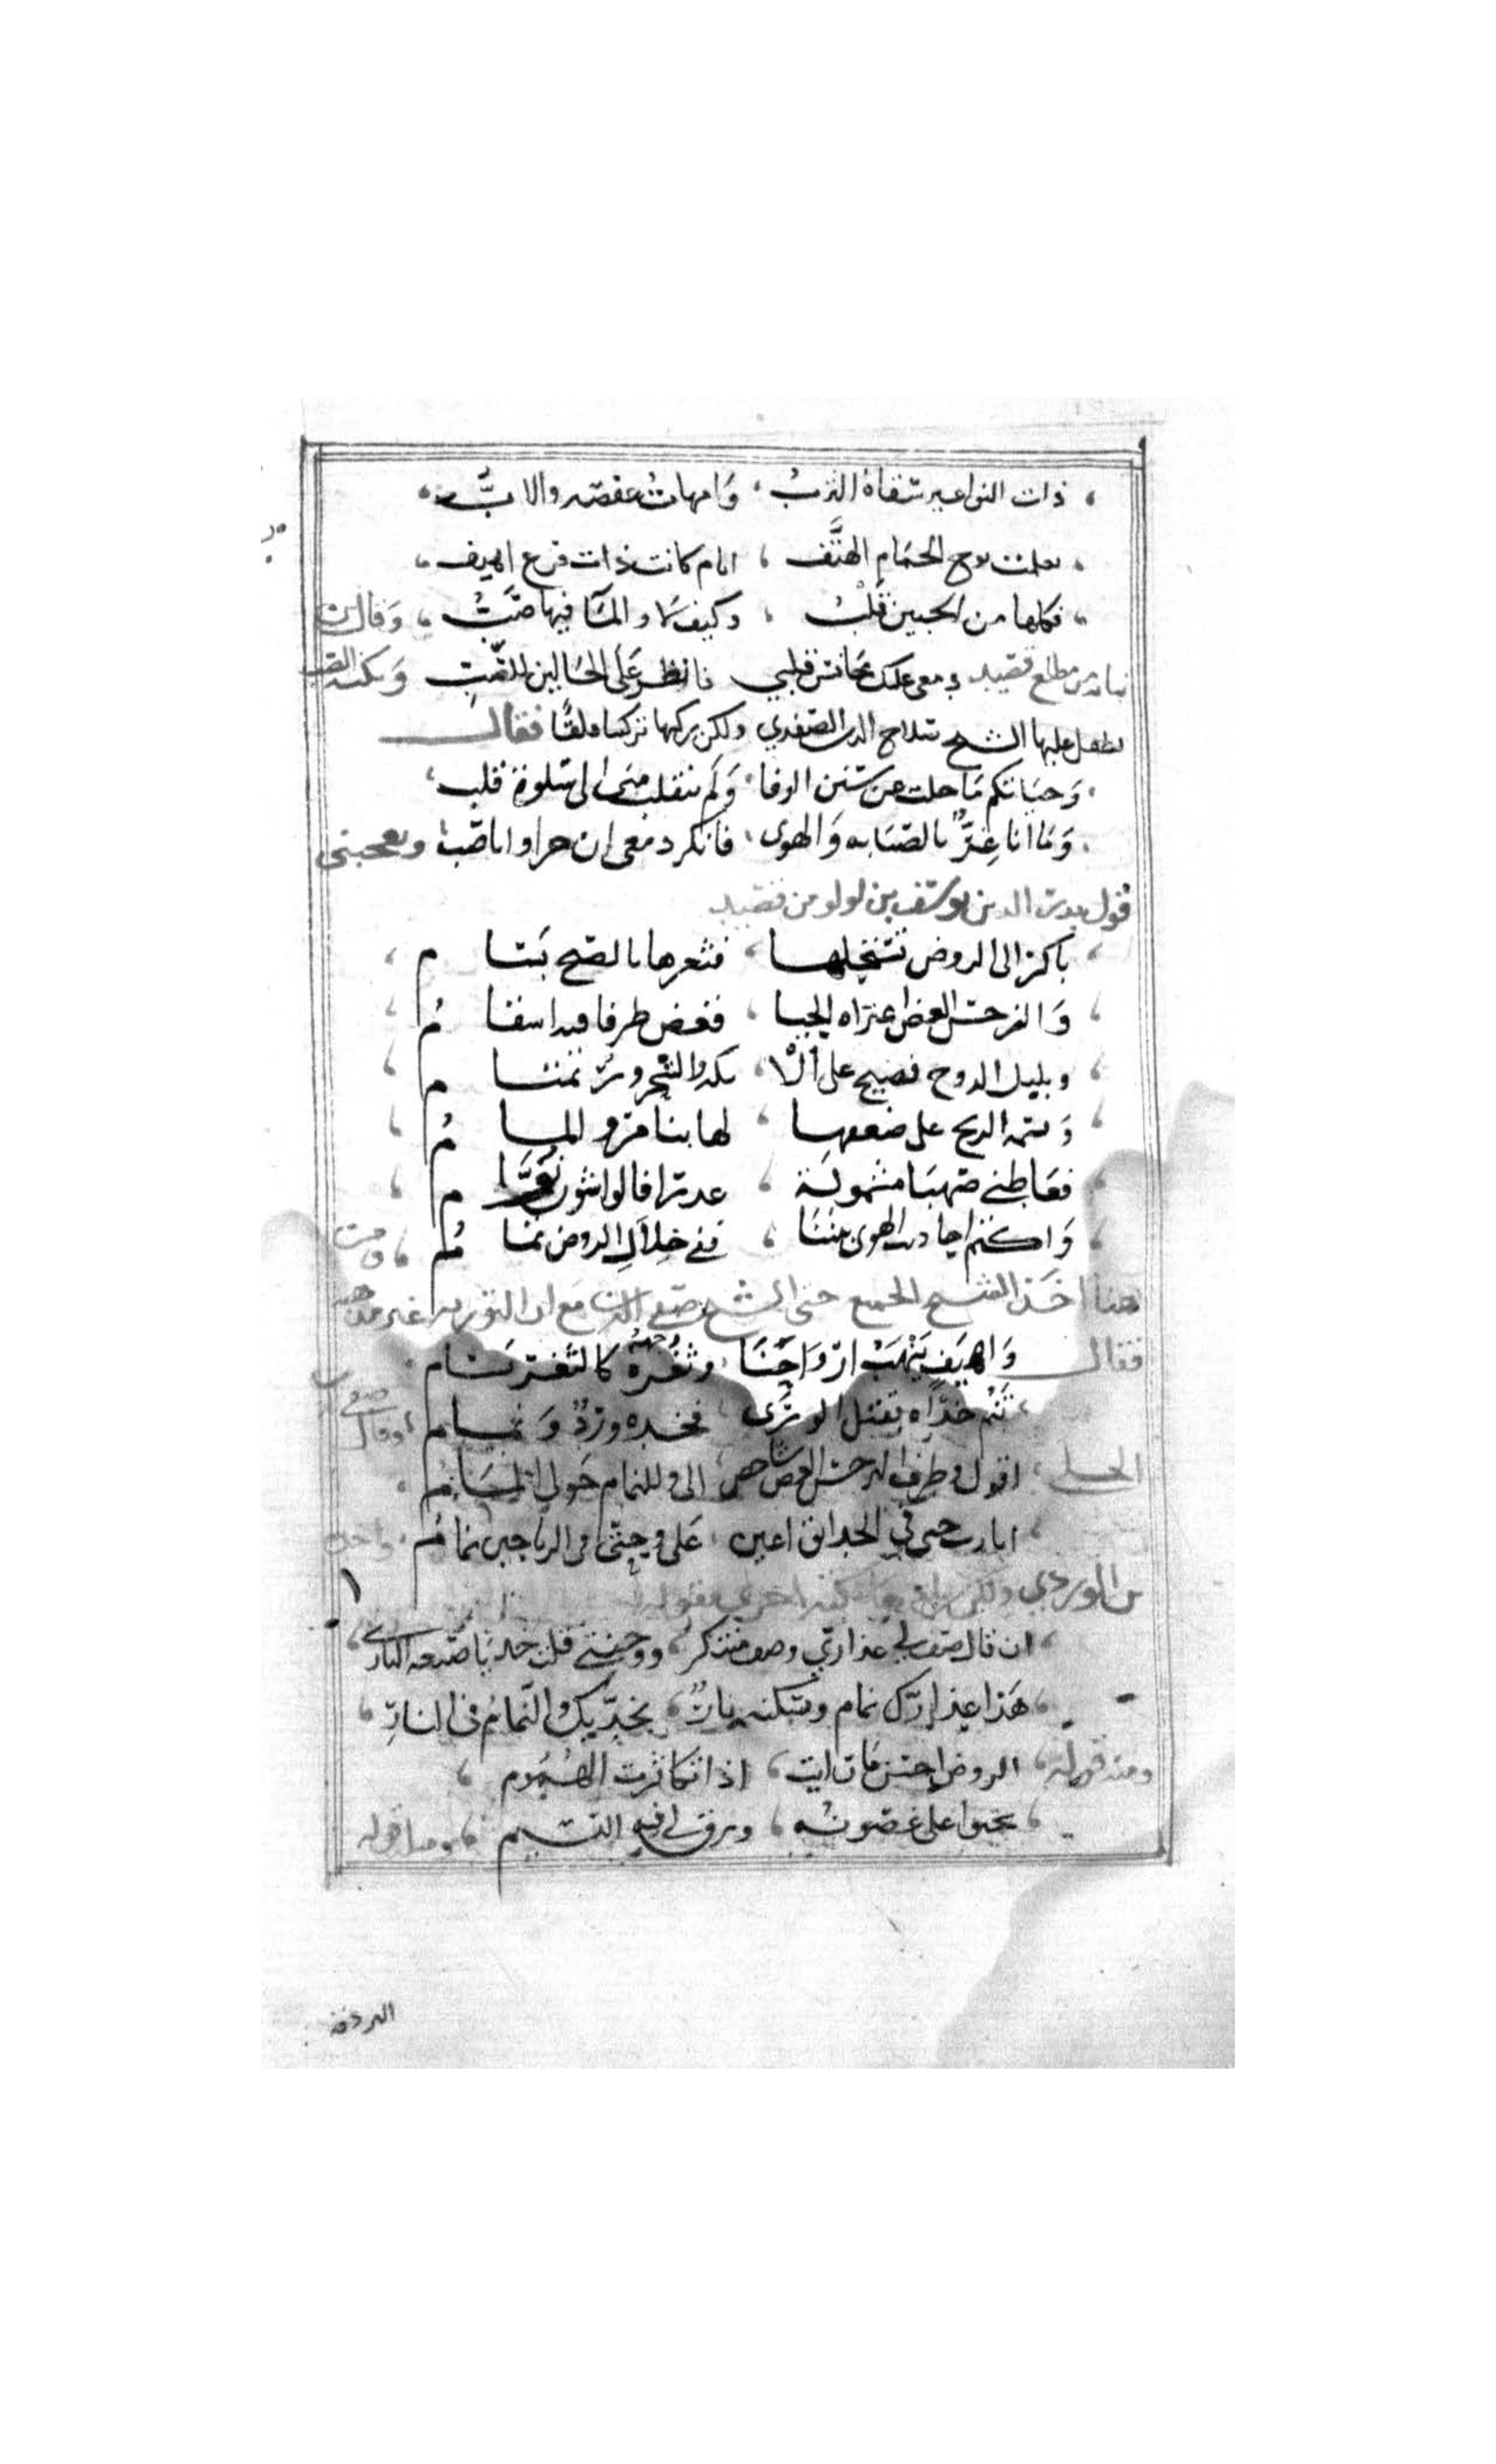 ذات النواعير سقاة الترب ، وامهات عصفه والاب
تعلمت نوح الحمام الهتف ، ايام كانت ذات فرع اهيف
فكلها من الحنين قلب ، وكيف لا والمآ فيها صب ، وقال ابن
نباته من مطلع قصيد دمعي عليك مجانس قلبي فانظر على الحالين للصب
تطفل عليها الشيخ صلاح الدين الصفدي ولكن تركيبا قلقا فقال
وحياتكم ما حلت عن سنن الوفا ، ولم ينقلب مني الى سلوة قلب
وما انا غر بالصبابه والهوى ، فانكر دمعي ان جرا وانا صب ويعجبني
قول بدر الدين يوسف بن لولو من قصيد
باكر الى الروض تستجلها ، فثغرها بالصبح بسا م
والنرجس الغض اعتراه الحيا ، فغض طرفا فيه اسقا م
وبلبل الدوح فصيح على الا ، يكه والشحرور تمتا م
ونسمة الريح على ضعفها ، لها بنا مر والما م
فعاطني صهبا مشمولة ، عذرا فالواشون نوا م
واكتم احاديث الهوى بيننا ، ففي خلال الروض نما م ، ومن
هنا اخذ الجميع حتى الشيخ صفي الدين مع ان التوريه غير مذهبه
فقال واهيف ينهب ارواحنا ، وثغره كالثغر بسام
تم خداه بقتل الورى ، فخده ورد ونمام ، وقال صفي
الحلي ، اقول وطرف النرجس الغض شاخص ، الي وللنمام حولي المام
ايا رب حتى في الحدائق اعين ، علي وحتى في الرياحين نمام ، واخذه
بن الوردي ولكن اخرى بقوله
ان قال صف لي عذاري وصف مبتكر ، ووجنتي قلت خذ يا صنعه الباري
هذا عذارك نمام ومسكنه نار ، بخديك والنمام في النار
ومنه قوله ، الروض احسن ما رايت ، اذا تكاثرت الهموم
يحنو علي غصونه ، ويرق لي فيه النسيم ، ومنه قوله